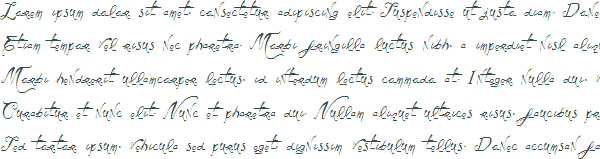 Lorem ipsum dalar sit amet, cansectetur adipiscing elit. Suspendisse ut justa diam. Dane
Etiam tempar vel risus nec pharetra. Marbi fringilla luctus nibh, a imperdiet nisl aliqu
Marbi hendrerit ullamcarper lectus, id interdum lectus cammada at. Integer nulla dui, v
Curabitur et nunc elit. Nunc et pharetra dui. Nullam aliquet ultrices risus, faucibus pr
Sed tartar ipsum, vehicula sed purus eget, dignissim vestibulum tellus. Danec accumsan fa